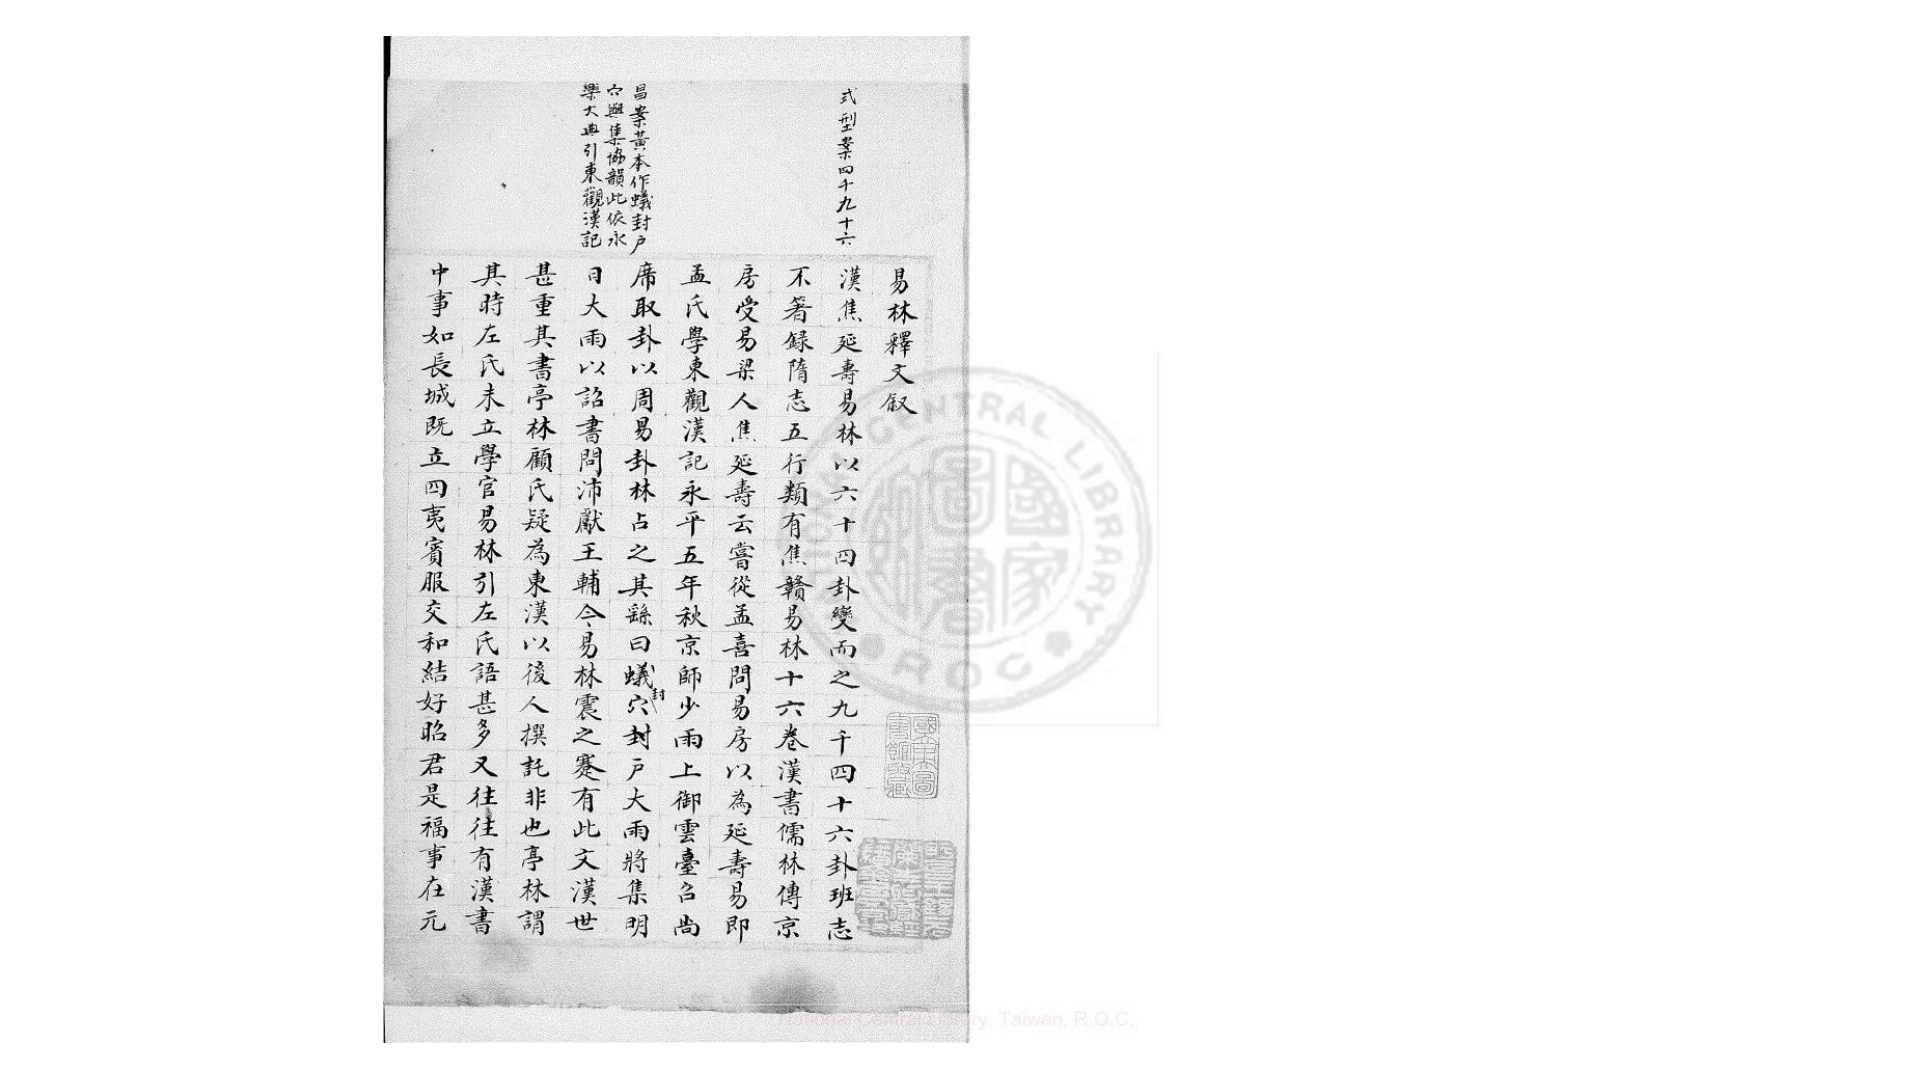 式型案四千九十六
昌案黃本作蟻封戶
穴與集協韻此依永
樂大典引東觀漢記
易林釋文叙
漢焦延壽易林以六十四卦變而之九千四十六卦班志
不箸録隋志五行類有焦贛易林十六卷漢書儒林傳京
房受易梁人焦延壽云嘗從孟喜問易房以為延壽易即
孟氏學東觀漢記永平五年秋京師少雨上御雲臺召尚
席取卦以周易卦林占之其繇曰蟻穴封戶大雨將集明
封
日大雨以詔書問沛獻王輔今易林震之蹇有此文漢世
甚重其書亭林顧氏疑為東漢以後人撰託非也亭林謂
其時左氏未立學官易林引左氏語甚多又往往有漢書
中事如長城既立四夷賓服交和結好昭君是福事在元
NATIONAL CENTRAL LIBRARY
國家圖書館
ROC
National Central Library, Taiwan, R.O.C.